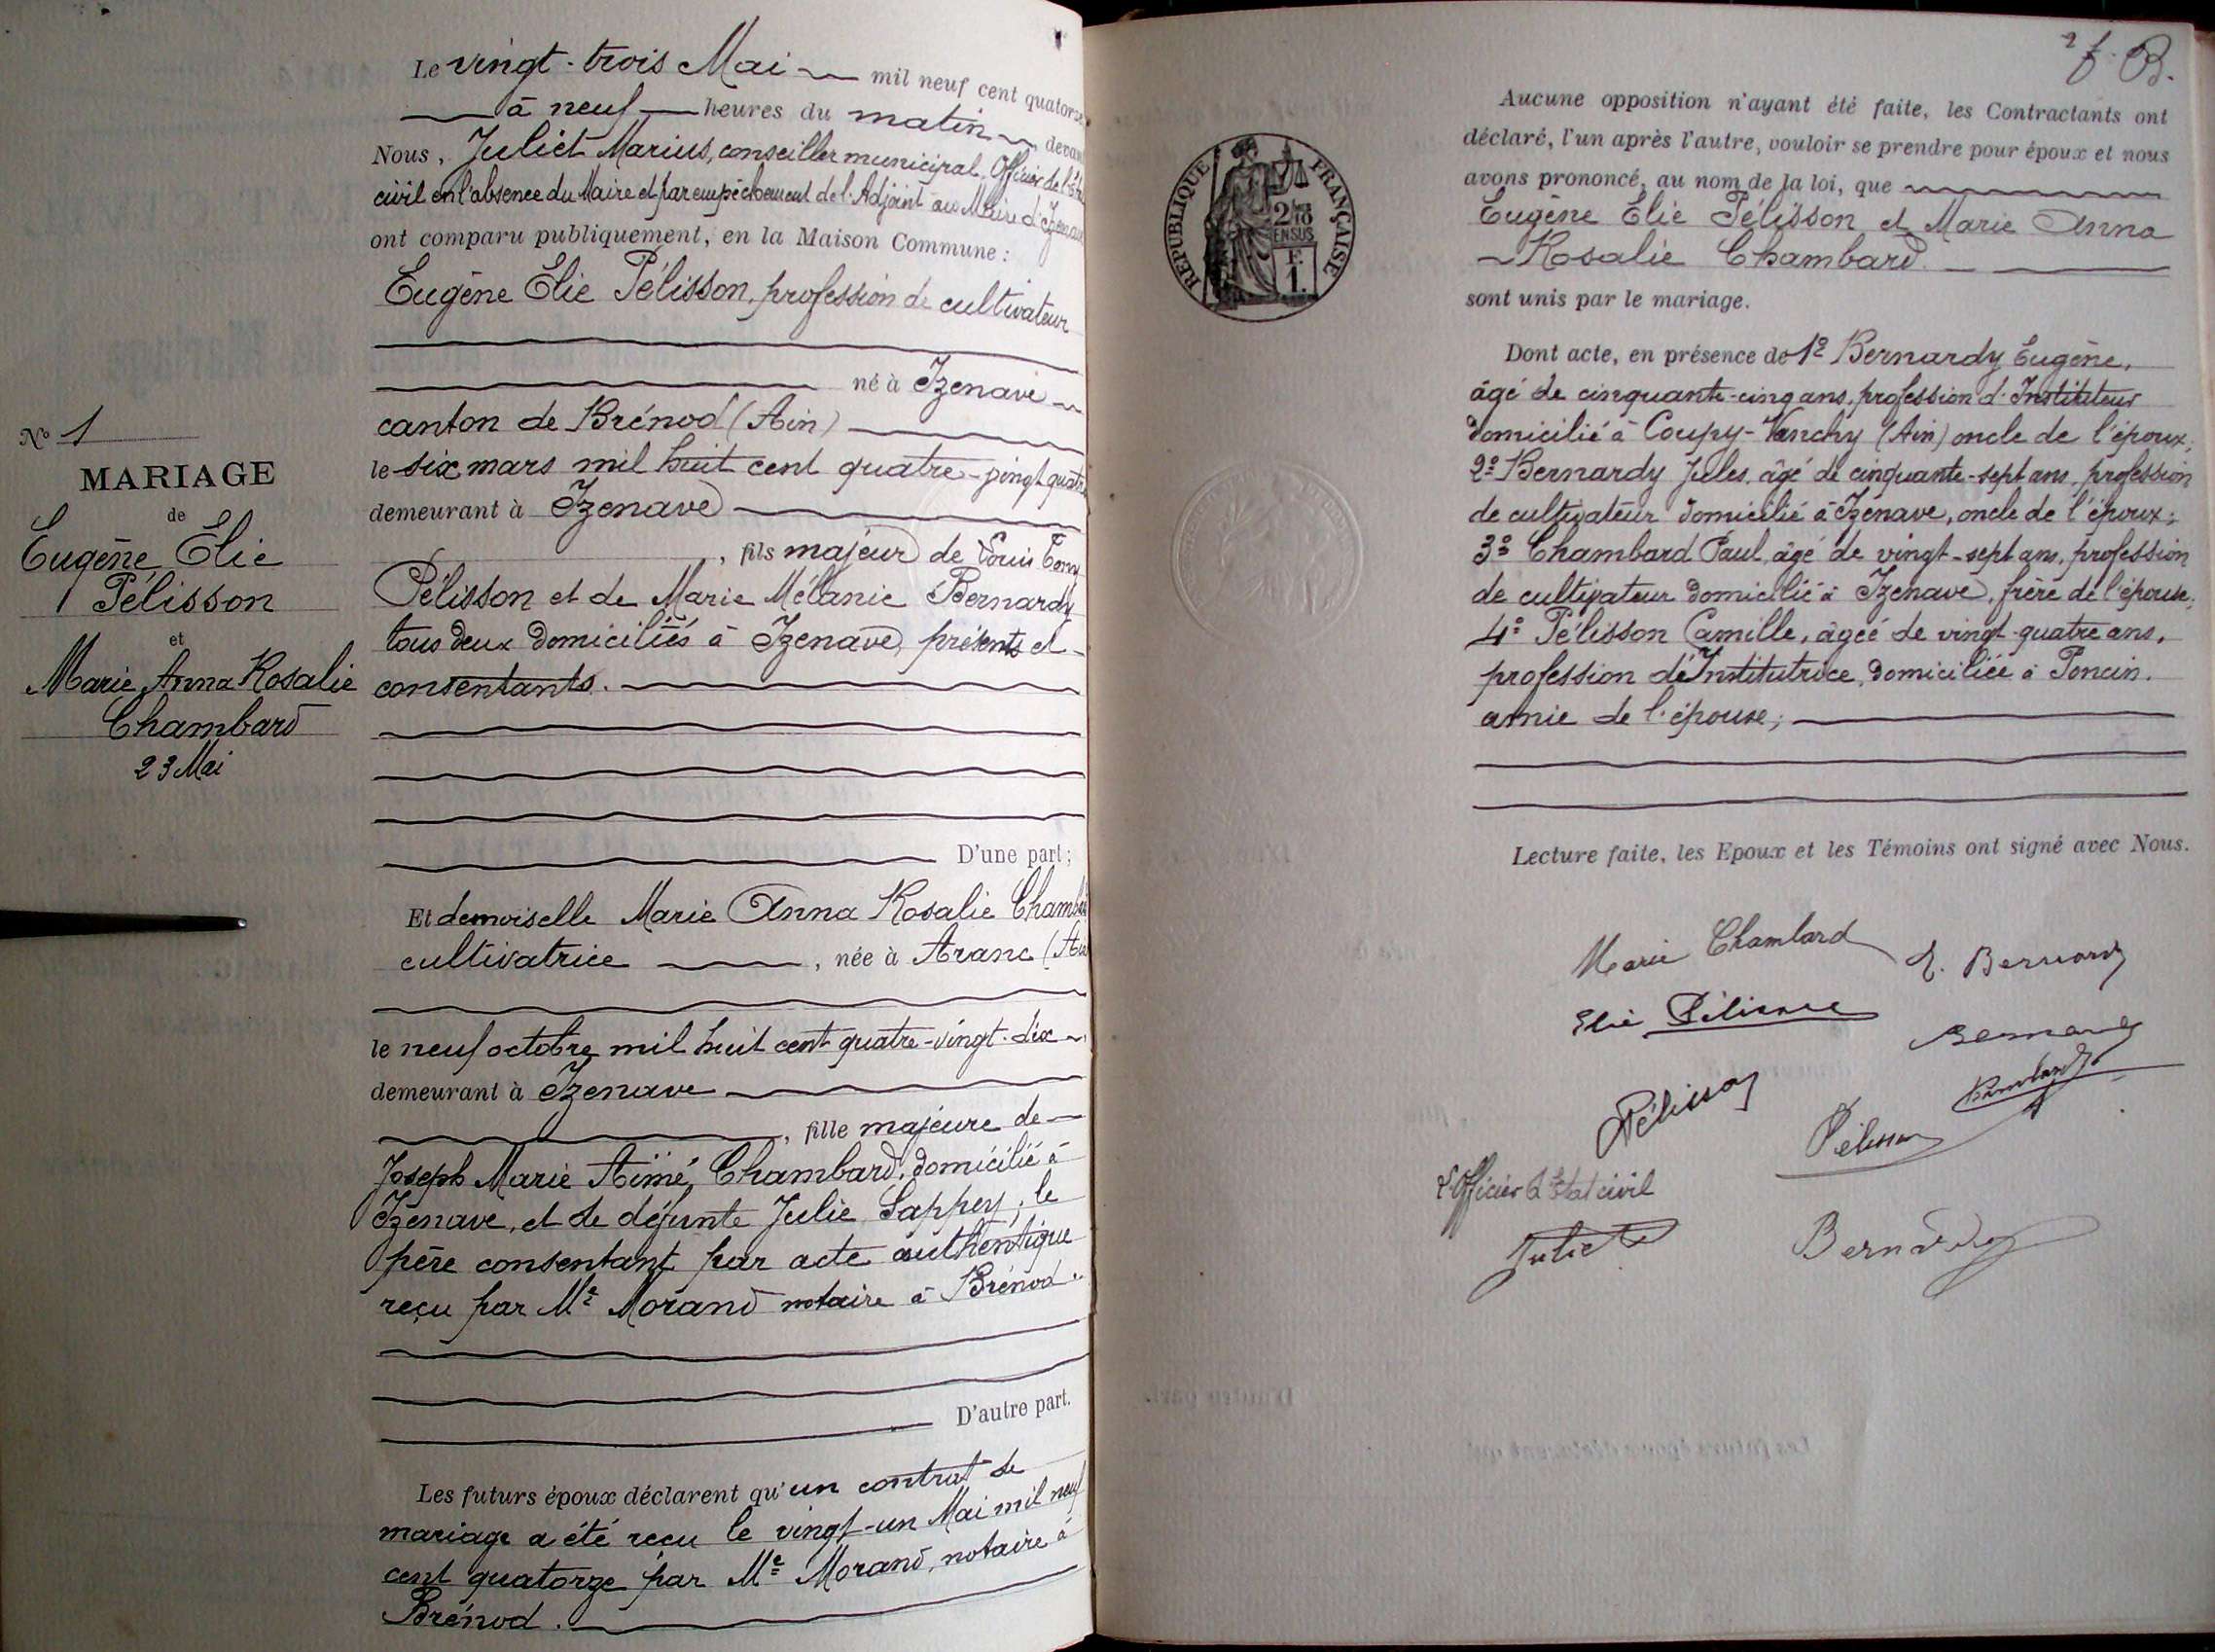 Le vingt-trois Mai mil neuf cent quatorze
à neuf heures du matin, devant
Nous, Juliet Marius, conseiller municipal, Officier de l'état
civil en l'absence du Maire et par empêchement de l'Adjoint au Maire d'Izenave
ont comparu publiquement, en la Maison Commune :
Eugène Elie Pélisson, profession de cultivateur
né à Izenave
canton de Brénod (Ain)
le six mars mil huit cent quatre-vingt-quatre
demeurant à Izenave
, fils majeur de Louis
Pélisson et de Marie Mélanie Bernardy
tous deux domiciliés à Izenave, présents et
consentants.
D'une part ;
N° 1
MARIAGE
de
Eugène Elie
Pélisson
et
Marie Anna Rosalie
Chambard
23 Mai
Et demoiselle Marie Anna Rosalie Chambard
cultivatrice, née à Aranc (Ain
le neuf octobre mil huit cent quatre-vingt-dix
demeurant à Izenave
, fille majeure de
Joseph Marie Aimé Chambard, domicilié à
Izenave, et de défunte Julie Sappey ; le
père consentant par acte authentique
reçu par Me Morand notaire à Brénod.
D'autre part.
Les futurs époux déclarent qu'un contrat de
mariage a été reçu le vingt-un Mai mil neuf
cent quatorze par Me Morand, notaire à
Brénod.
REPUBLIQUE FRANÇAISE
2/10
EN SUS
F.
1.
Aucune opposition n'ayant été faite, les Contractants ont
déclaré, l'un après l'autre, vouloir se prendre pour époux et nous
avons prononcé, au nom de la loi, que
Eugène Elie Pélisson et Marie Anna
Rosalie Chambard
sont unis par le mariage.
Dont acte, en présence de 1° Bernardy Eugène,
âgé de cinquante-cinq ans, profession d'Instituteur
domicilié à Coupy-Vanchy (Ain) oncle de l'époux ;
2° Bernardy Jules, âgé de cinquante-sept ans, profession
de cultivateur domicilié à Izenave, oncle de l'époux ;
3° Chambard Paul, âgé de vingt-sept ans, profession
de cultivateur domicilié à Izenave, frère de l'épouse ;
4° Pélisson Camille, âgée de vingt-quatre ans,
profession d'Institutrice, domiciliée à Poncin,
amie de l'épouse ;
Lecture faite, les Epoux et les Témoins ont signé avec Nous.
Marie Chambard
E. Bernardy
Elie Pélisson
Bernardy
Chambard
Pélisson
Pélisson
L'Officier d'Etat civil
Juliet
Bernardy